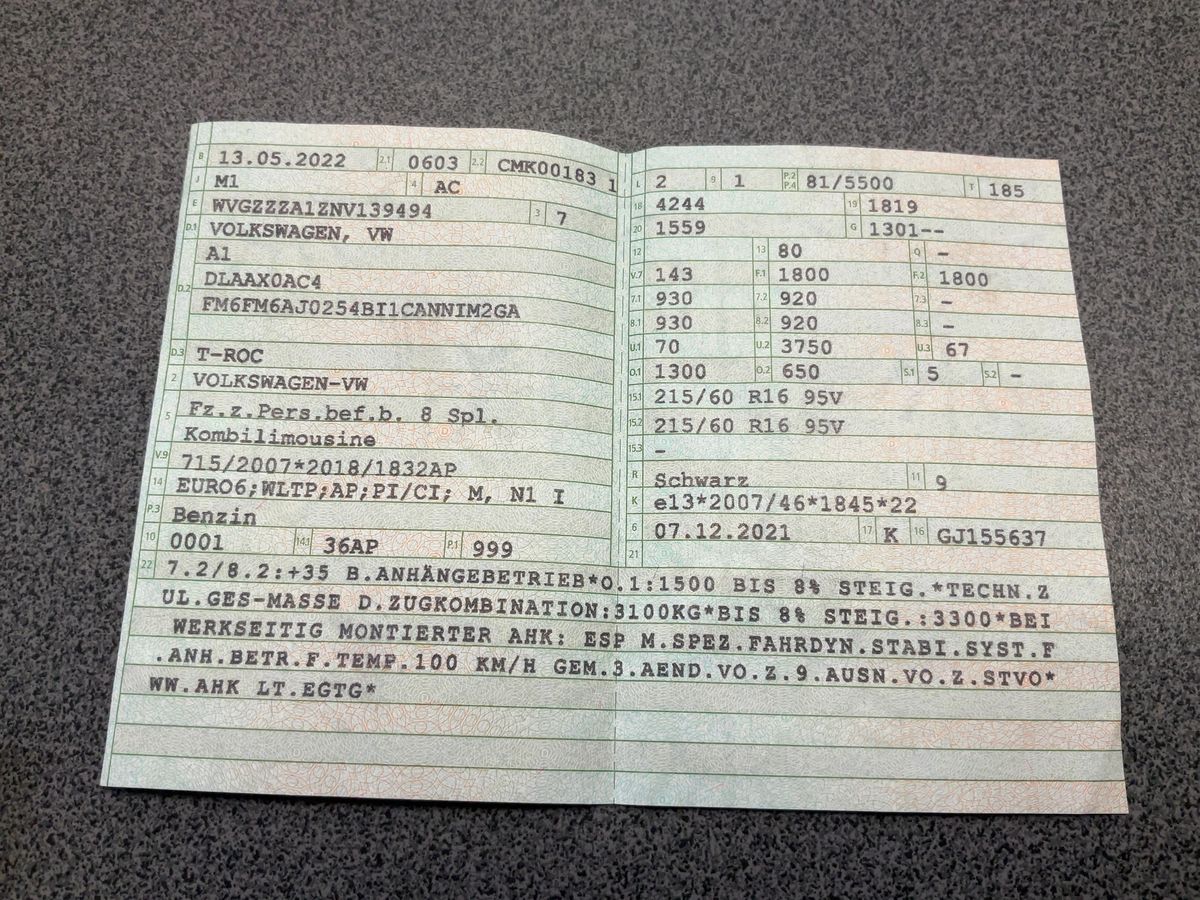 B 13.05.2022 2.1 0603 2.2 CMK00183 1
J M1 4 AC
E WVGZZZA1ZNV139494 3 7
D.1 VOLKSWAGEN, VW
A1
D.2 DLAAX0AC4
FM6FM6AJ0254BI1CANNIM2GA
D.3 T-ROC
2 VOLKSWAGEN-VW
5 Fz.z.Pers.bef.b. 8 Spl.
Kombilimousine
V.9 715/2007*2018/1832AP
14 EURO6;WLTP;AP;PI/CI; M, N1 I
P.3 Benzin
10 0001 14.1 36AP P.1 999
L 2 9 1 P.2 P.4 81/5500 T 185
18 4244 19 1819
20 1559 G 1301--
12 13 80 Q -
V.7 143 F.1 1800 F.2 1800
7.1 930 7.2 920 7.3 -
8.1 930 8.2 920 8.3 -
U.1 70 U.2 3750 U.3 67
O.1 1300 O.2 650 S.1 5 S.2 -
15.1 215/60 R16 95V
15.2 215/60 R16 95V
15.3 -
R Schwarz 11 9
K e13*2007/46*1845*22
6 07.12.2021 17 K 16 GJ155637
21
22 7.2/8.2:+35 B.ANHÄNGEBETRIEB*O.1:1500 BIS 8% STEIG.*TECHN.Z
UL.GES-MASSE D.ZUGKOMBINATION:3100KG*BIS 8% STEIG.:3300*BEI
WERKSEITIG MONTIERTER AHK: ESP M.SPEZ.FAHRDYN.STABI.SYST.F
.ANH.BETR.F.TEMP.100 KM/H GEM.3.AEND.VO.Z.9.AUSN.VO.Z.STVO*
WW.AHK LT.EGTG*